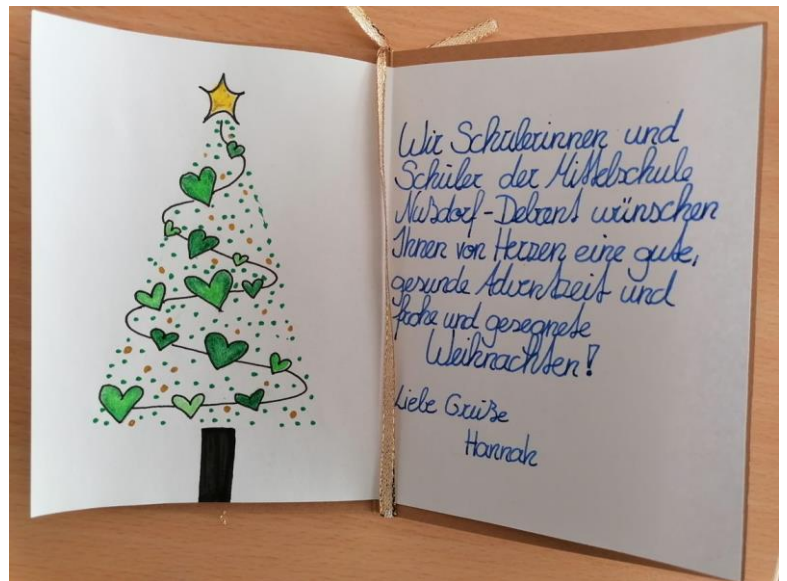 Wir Schülerinnen und
Schüler der Mittelschule
Nußdorf-Debant wünschen
Ihnen von Herzen eine gute,
gesunde Adventzeit und
frohe und gesegnete
Weihnachten!
Liebe Grüße
Hannah